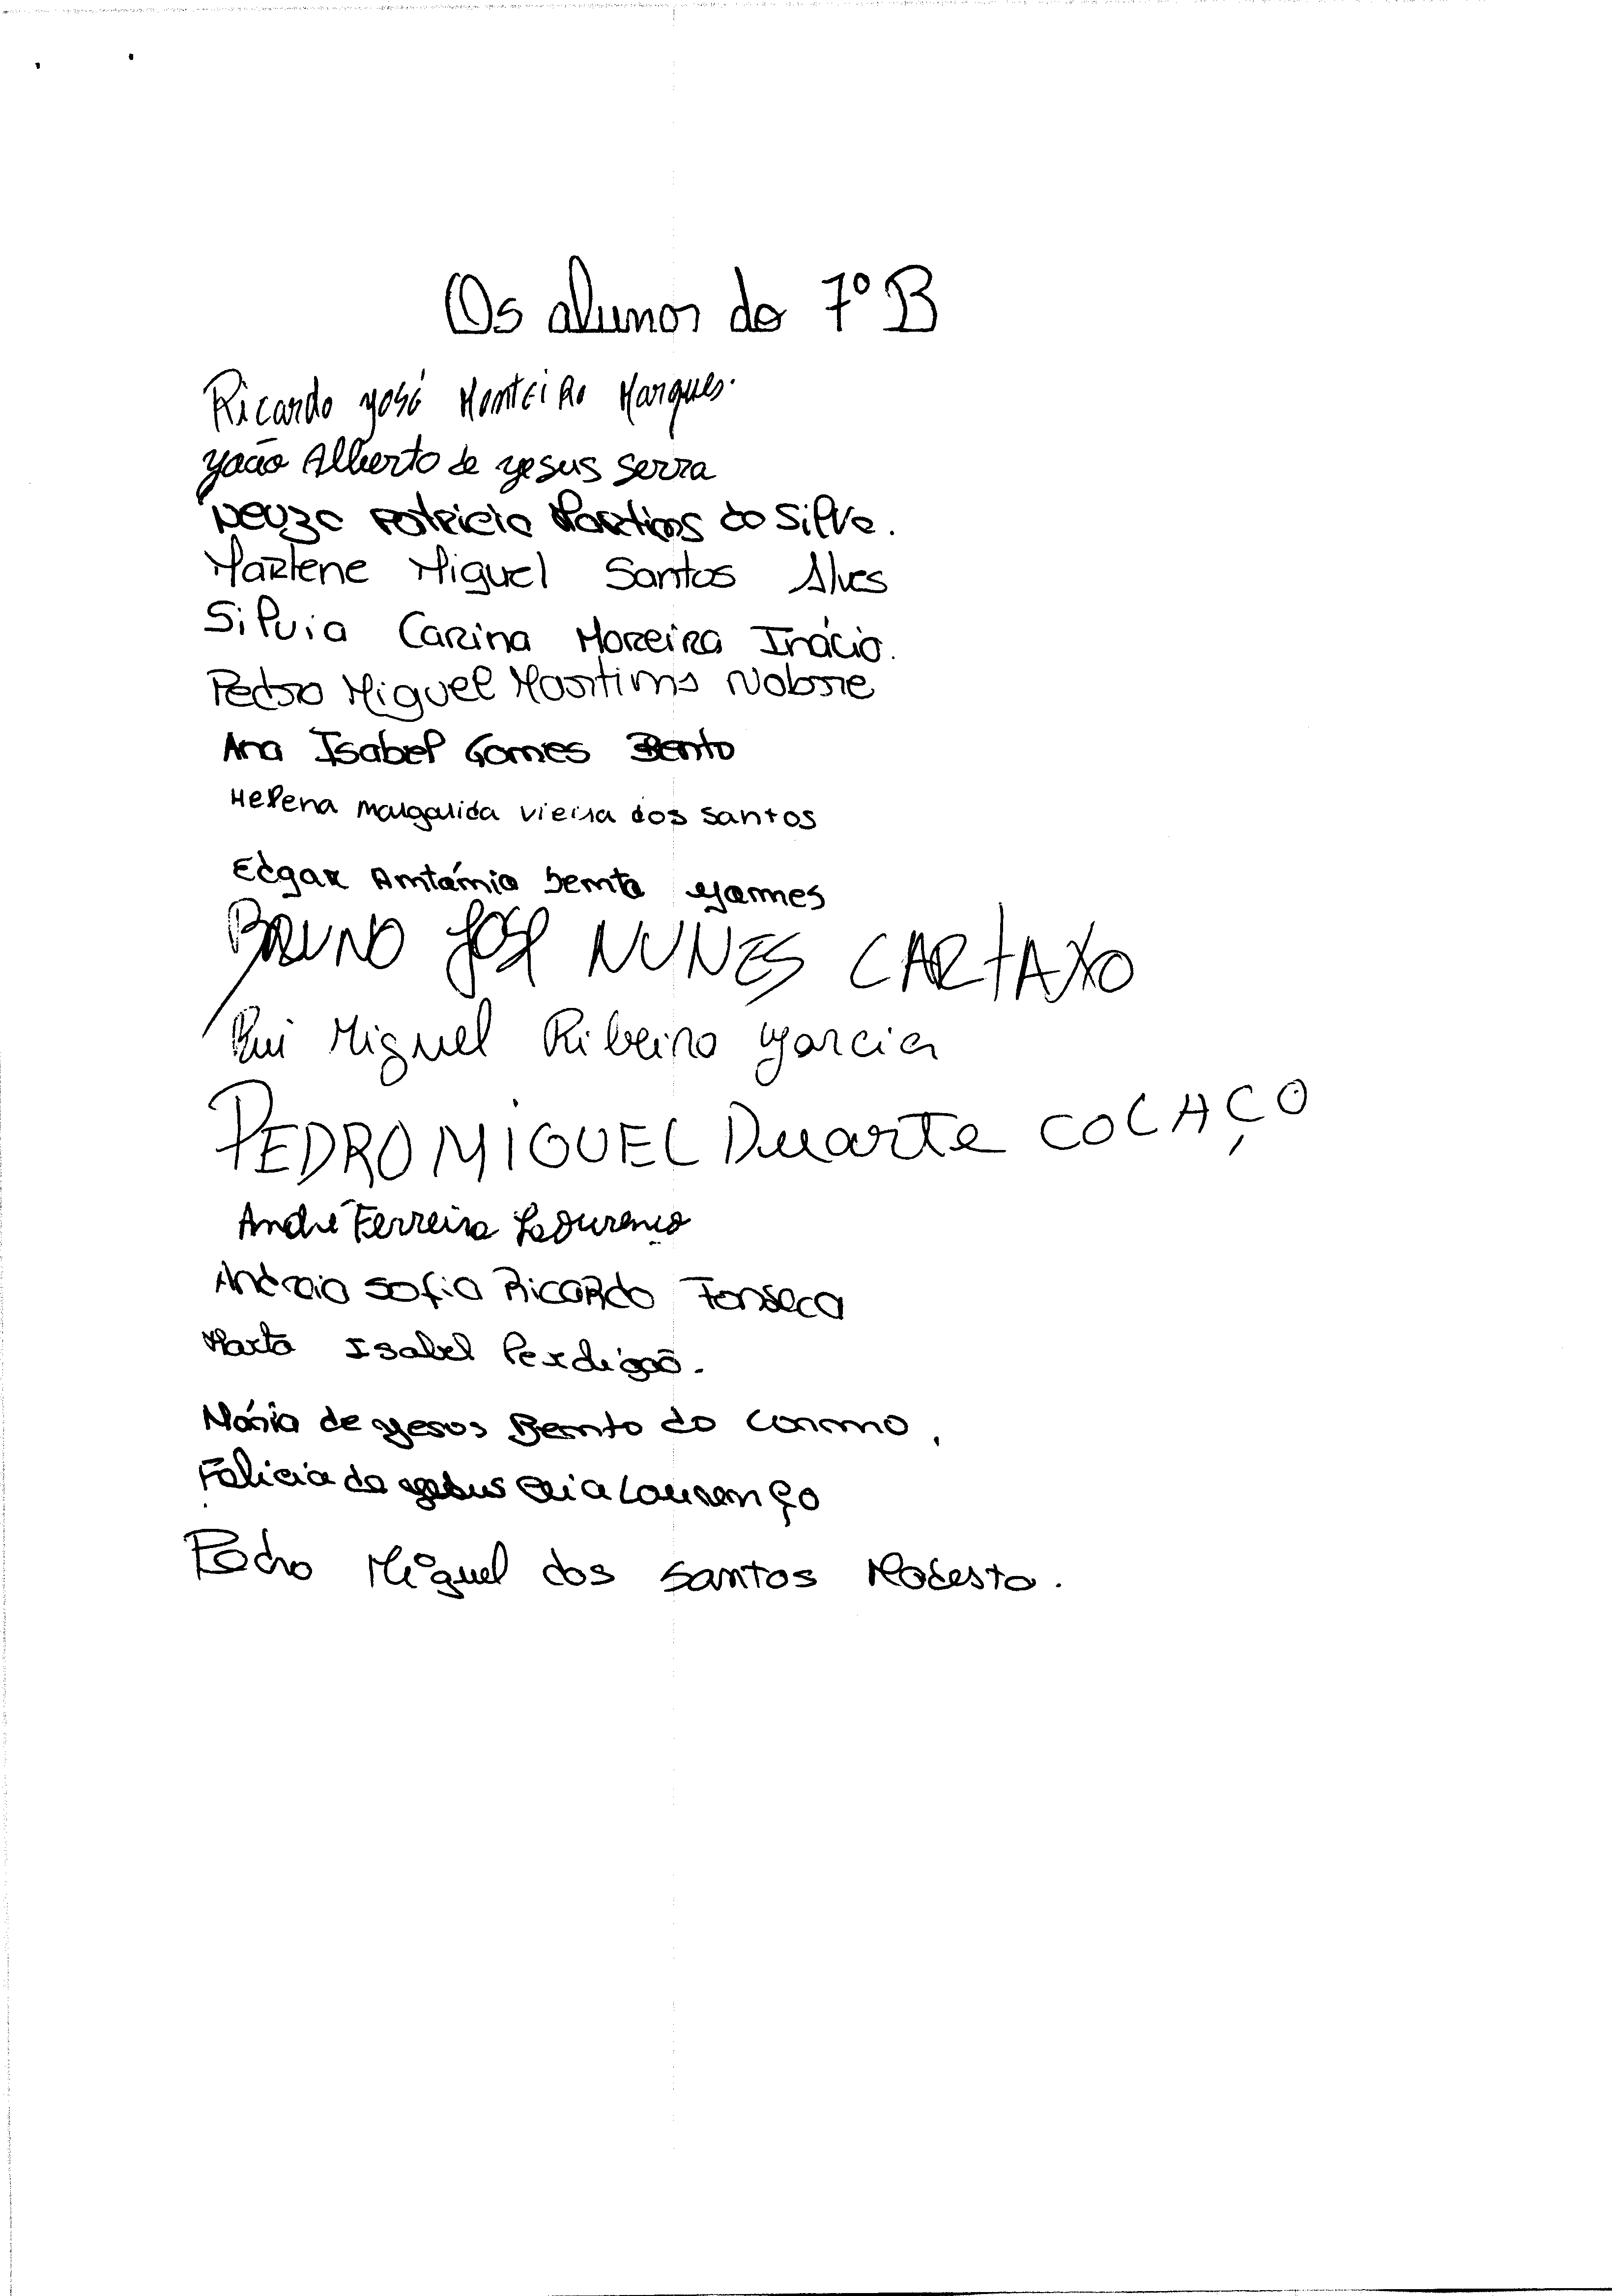 Os alunos do 7º B
Ricardo José Monteiro Marques.
João Alberto de Jesus Serra
Neuza Patricia Martins da Silva.
Marlene Miguel Santos Alves
Silvia Carina Moreira Inácio.
Pedro Miguel Martins Nobre
Ana Isabel Gomes Bento
Helena Margarida Vieira dos Santos
Edgar António Bento Gomes
BRUNO JOSÉ NUNES CARTAXO
Rui Miguel Ribeiro Garcia
PEDRO MIGUEL Duarte COLAÇO
André Ferreira Lourenço
Andreia Sofia Ricardo Fonseca
Marta Isabel Perdigão.
Mária de Jesus Bento do Carmo.
Felicia de Jesus Lourenço
Pedro Miguel dos Santos Modesto.